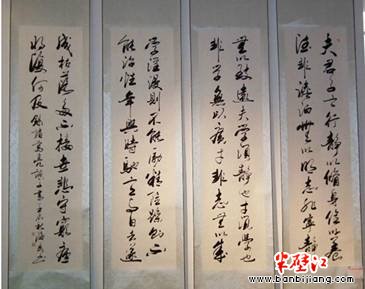 夫君子之行静以修身俭以養
德非澹泊無以明志非寧静
無以致遠夫学須静也才須学也
非学無以廣才非志無以成
学淫漫則不能励精险躁則不
能治性年與時馳意與日去遂
成枯落多不接世悲守窮廬
將復何及 録諸葛亮誡子書
半壁江
www.banbijiang.com